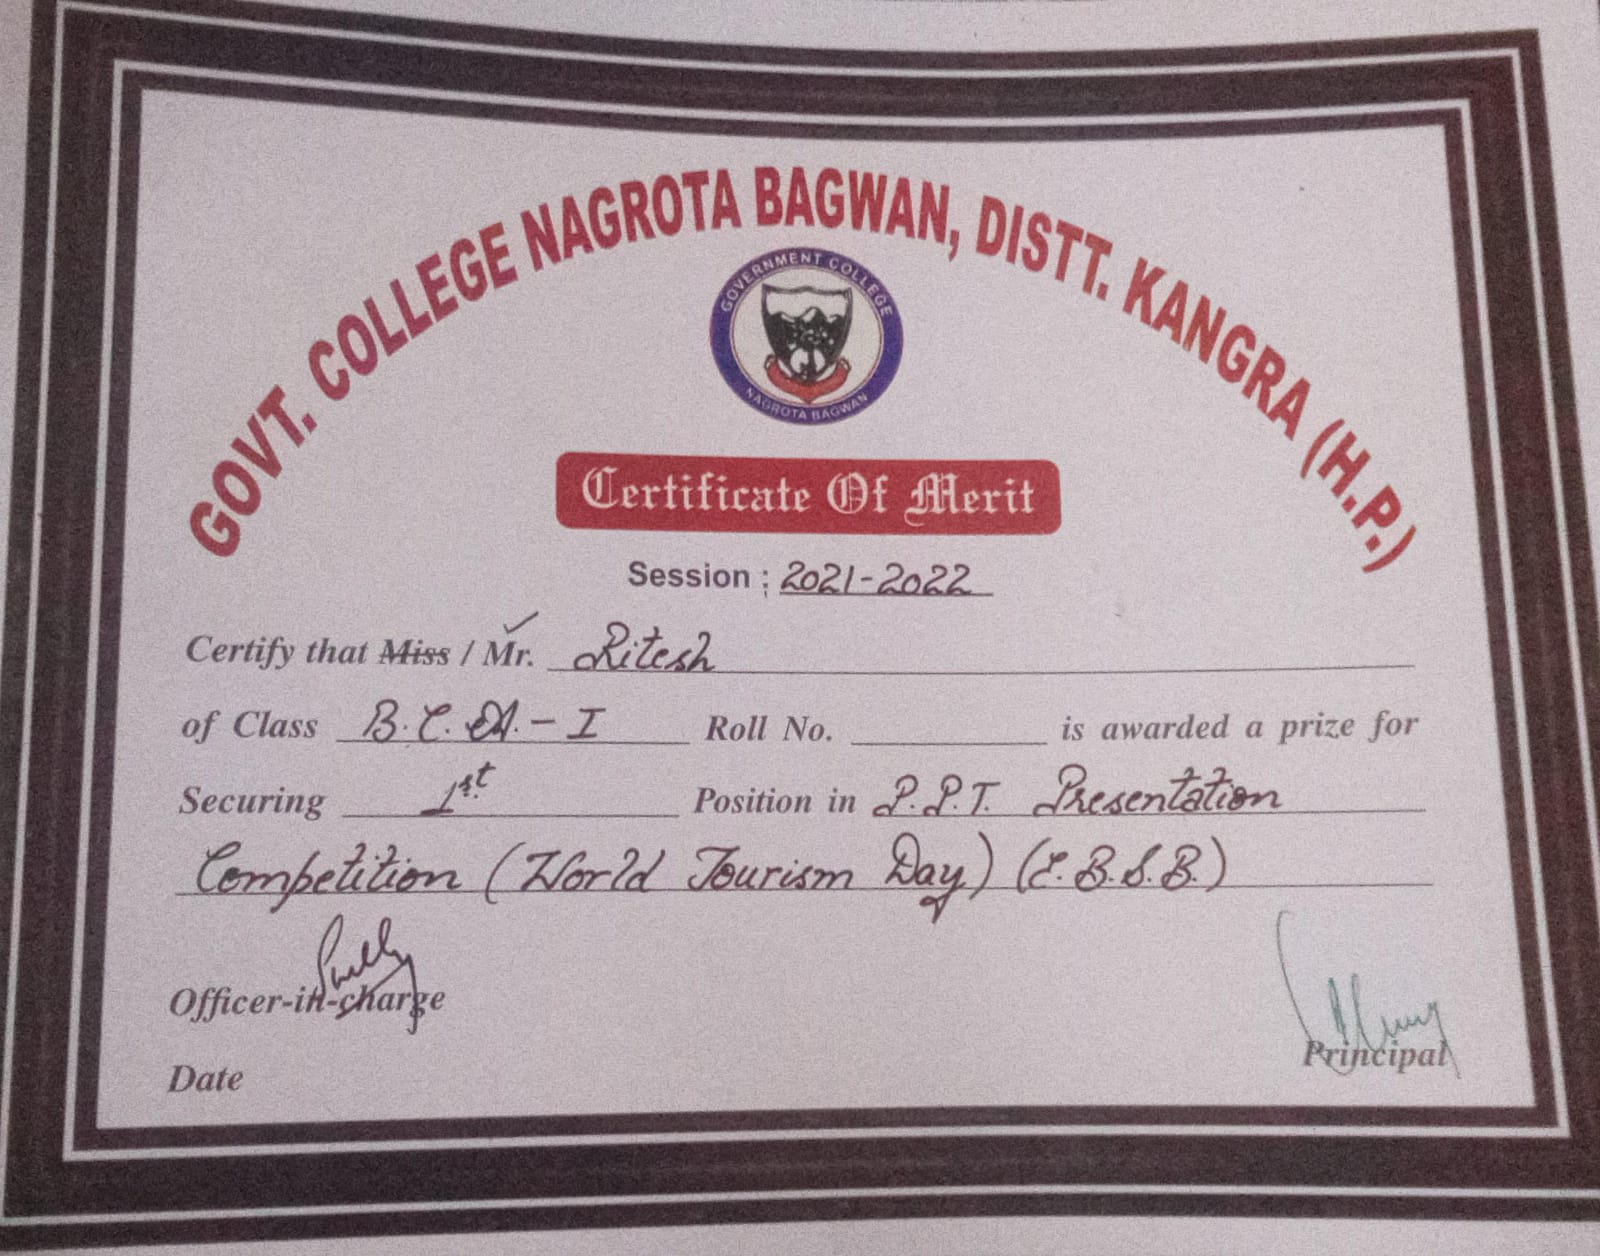 GOVT. COLLEGE NAGROTA BAGWAN, DISTT. KANGRA (H.P.)
GOVERNMENT COLLEGE
NAGROTA BAGWAN
Certificate Of Merit
Session : 2021-2022
Certify that Miss / Mr. Ritesh
of Class B.C.A. - I Roll No. is awarded a prize for
Securing 1st Position in P.P.T. Presentation
Competition (World Tourism Day) (E.B.S.B.)
Officer-in-charge
Principal
Date